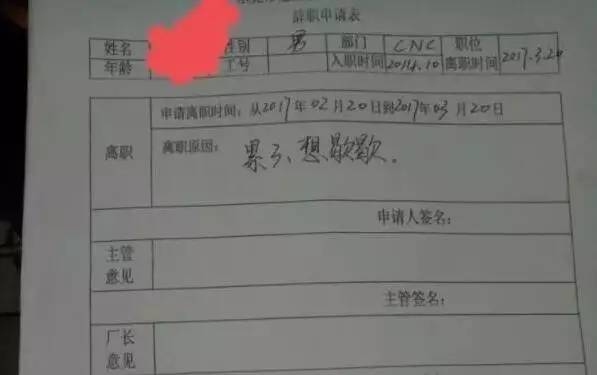 辞职申请表
姓名 性别 男 部门 CNC 职位
年龄 工号 入职时间 2014.10 离职时间 2017.3.20
申请离职时间：从2017年02月20日到2017年03月20日
离职 离职原因：累了、想歇歇.
申请人签名：
主管意见
主管签名：
厂长意见